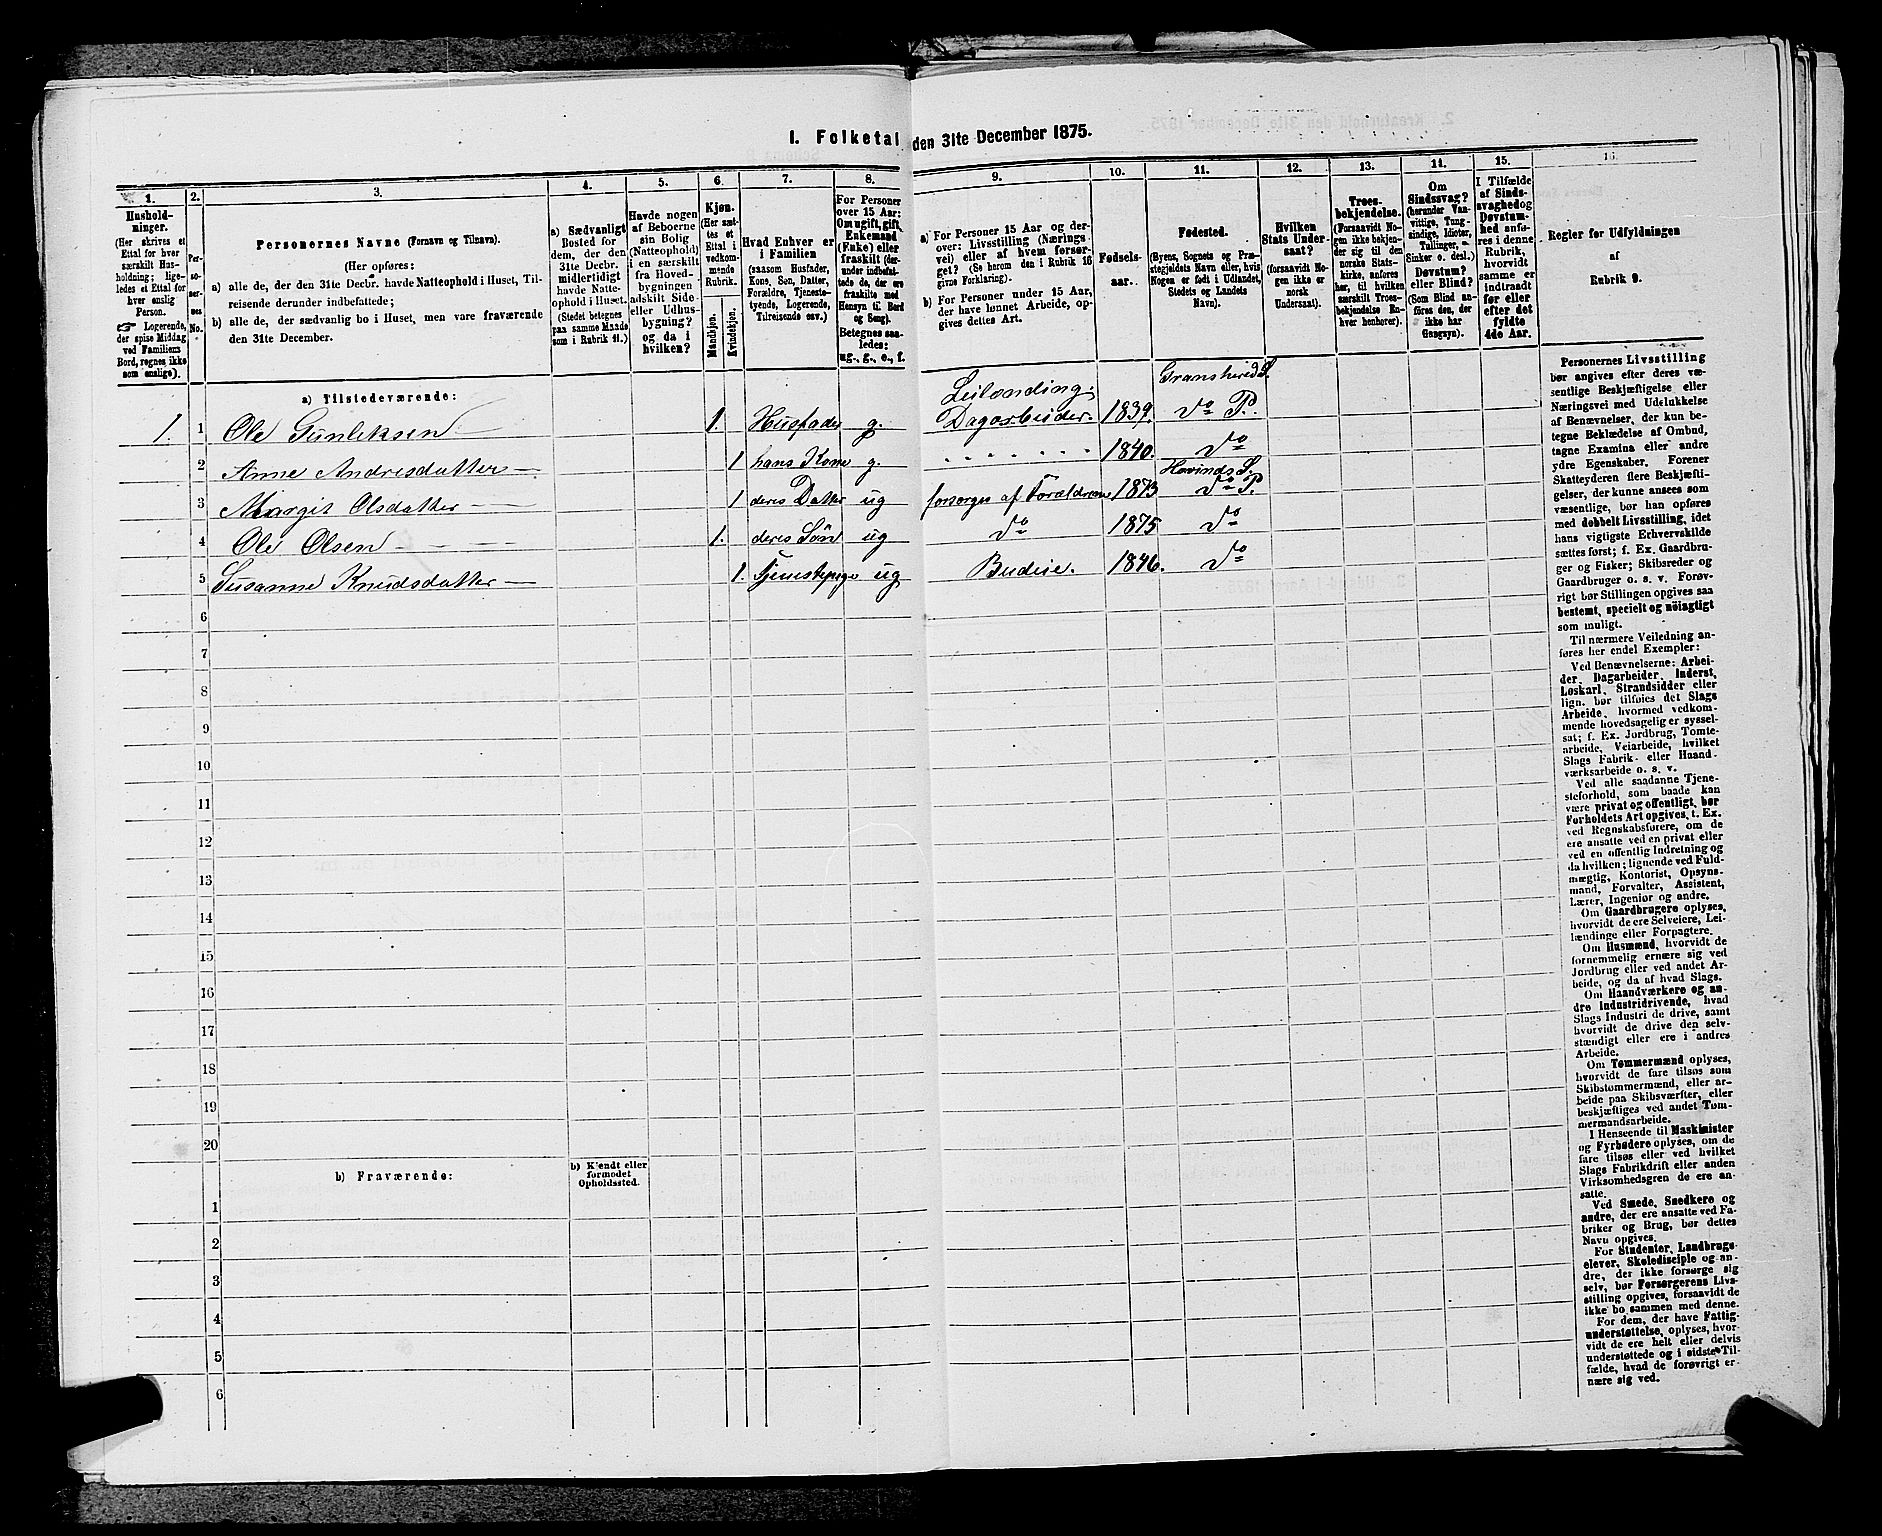 I. Folketal den 31te December 1875.
1.
Hushold-
ninger.
(Her skrives et
Ettal for hver
særskilt Hus-
holdning; lige-
ledes et Ettal for
hver enslig
Person.
☞ Logerende,
der spise Middag
ved Familiens
Bord, regnes ikke
som enslige).
2.
Per-
so-
ner-
nes
No.
3.
Personernes Navne (Fornavn og Tilnavn).
(Her opføres:
a) alle de, der den 31te Decbr. havde Natteophold i Huset, Til-
reisende derunder indbefattede;
b) alle de, der sædvanlig bo i Huset, men vare fraværende
den 31te December.
4.
a) Sædvanligt
Bosted for
dem, der den
31te Decbr.
midlertidigt
havde Natte-
ophold i Huset.
(Stedet betegnes
paa samme Maade
som i Rubrik 11.)
5.
Havde nogen
af Beboerne
sin Bolig
(Natteophold)
i en særskilt
fra Hoved-
bygningen
adskilt Side-
eller Udhus-
bygning?
og da i
hvilken?
6.
Kjøn.
(Her sæt-
tes et
Ettal i
vedkom-
mende
Rubrik.
Mandkjøn.
Kvindekjøn.
7.
Hvad Enhver er
i Familien
(saasom Husfader,
Kone, Søn, Datter,
Forældre, Tjeneste-
tyende, Logerende,
Tilreisende osv.)
8.
For Personer
over 15 Aar:
Om ugift, gift,
Enkemand
(Enke) eller
fraskilt (der-
under indbefat-
tede de, der ere
fraskilte med
Hensyn til Bord
og Seng).
Betegnes saa-
ledes:
ug., g., e., f.
9.
a) For Personer 15 Aar og der-
over: Livsstilling (Nærings-
vei) eller af hvem forsør-
get? (Se herom den i Rubrik 16
givne Forklaring).
b) For Personer under 15 Aar,
der have lønnet Arbeide, op-
gives dettes Art.
10.
Fødsels-
aar.
11.
Fødested.
(Byens, Sognets og Præ-
stegjeldets Navn eller, hvis
Nogen er født i Udlandet,
Stedets og Landets
Navn).
12.
Hvilken
Stats Under-
saat?
(forsaavidt No-
gen ikke er
norsk
Undersaat).
13.
Troes-
bekjendelse.
(Forsaavidt No-
gen ikke bekjen-
der sig til den
norske Stats-
kirke, anføres
her, til hvilken
særskilt Troes-
bekjendelse En-
hver henhører).
14.
Om
Sindssvag?
(herunder Van-
vittige, Tung-
sindige, Idioter,
Tullinger,
Sinker o. desl.)
Døvstum?
eller Blind?
(Som Blind an-
føres den, der
ikke har
Gangsyn).
15.
I Tilfælde
af Sinds-
svaghed og
Døvstum-
hed anfø-
res i denne
Rubrik,
hvorvidt
samme er
indtraadt
før eller
efter det
fyldte
4de Aar.
16.
Regler for Udfyldningen
af
Rubrik 9.
a) Tilstedeværende:
1. 1 Ole Gunleksen 1. Husfader g. Leilænding. Dagarbeider. 1839. Gransherred S. do P.
2 Anne Andrisdatter 1 hans Kone g. 1840. do
3 Margit Olsdatter 1 deres Datter ug forsørges af Forældrene 1873 Hovinds S. do P.
4 Ole Olsen 1. deres Søn ug do 1875 do
5 Susanne Knudsdatter 1. Tjenestepige ug Budeie. 1846. do
6
7
8
9
10
11
12
13
14
15
16
17
18
19
20
b) Fraværende:
b) Kjendt eller
formodet
Opholdssted.
1
2
3
4
5
6
Personernes Livsstilling
bør angives efter deres væ-
sentlige Beskjæftigelse eller
Næringsvei med Udelukkelse
af Benævnelser, der kun be-
tegne Beklædelse af Ombud,
tagne Examina eller andre
ydre Egenskaber. Forener
Skatteyderen flere Beskjæfti-
gelser, der kunne ansees som
væsentlige, bør han opføres
med dobbelt Livsstilling, idet
hans vigtigste Erhvervskilde
sættes først; f. Ex. Gaardbru-
ger og Fisker; Skibsreder og
Gaardbruger o. s. v. Forøv-
rigt bør Stillingen opgives saa
bestemt, specielt og nøiagtigt
som muligt.
Til nærmere Veiledning an-
føres her endel Exempler:
Ved Benævnelserne: Arbei-
der, Dagarbeider, Inderst,
Løskarl, Strandsidder eller
lign. bør tilføies det Slags
Arbeide, hvormed vedkom-
mende hovedsagelig er syssel-
sat; f. Ex. Jordbrug, Tomte-
arbeide, Veiarbeide, hvilket
Slags Fabrik- eller Haand-
værksarbeide o. s. v.
Ved alle saadanne Tjene-
steforhold, som baade kan
være privat og offentligt, bør
Forholdets Art opgives, t. Ex.
ved Regnskabsførere, om de
ere ansatte ved en privat eller
ved en offentlig Indretning og
da hvilken; lignende ved Fuld-
mægtig, Kontorist, Opsyns-
mand, Forvalter, Assistent,
Lærer, Ingeniør og andre.
Om Gaardbrugere oplyses,
hvorvidt de ere Selveiere, Lei-
lændinge eller Forpagtere.
Om Husmænd, hvorvidt de
fornemmelig ernære sig ved
Jordbrug eller ved andet Ar-
beide, og da af hvad Slags.
Om Haandværkere og an-
dre Industridrivende, hvad
Slags Industri de drive, samt
hvorvidt de drive den selv-
stændigt eller ere i andres
Arbeide.
Om Tømmermænd oplyses,
hvorvidt de fare tilsøs som
Skibstømmermænd, eller ar-
beide paa Skibsværfter, eller
beskjæftiges ved andet Tøm-
mermandsarbeide.
I Henseende til Maskinister
og Fyrbødere oplyses, om de
fare tilsøs eller ved hvilket
Slags Fabrikdrift eller anden
Virksomhedsgren de ere an-
satte.
Ved Smede, Snedkere og
andre, der ere ansatte ved Fa-
briker og Brug, bør dettes
Navn opgives.
For Studenter, Landbrugs-
elever, Skoledisciple og an-
dre, der ikke forsørge sig
selv, bør Forsørgerens Livs-
stilling opgives, forsaavidt de
ikke bo sammen med denne.
For dem, der have Fattig-
understøttelse, oplyses, hvor-
vidt de ere helt eller delvis
understøttede og i sidste Til-
fælde, hvad de forøvrigt er-
nære sig ved.